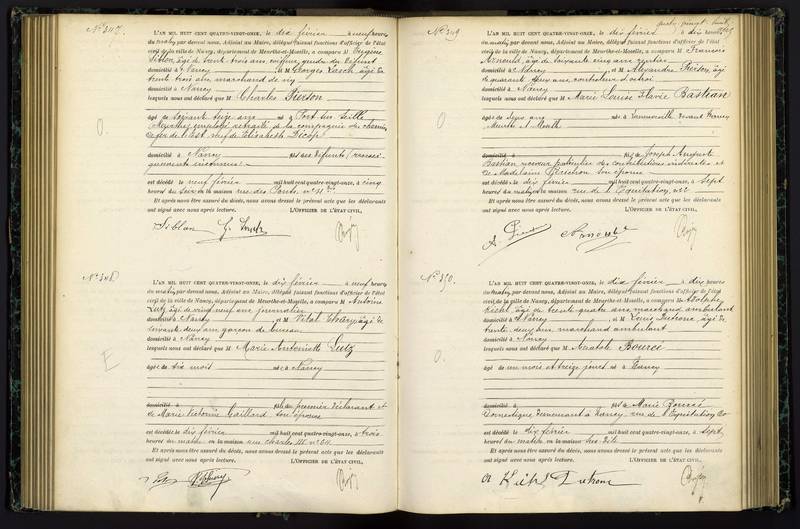 N° 347.
L'AN MIL HUIT CENT QUATRE-VINGT-ONZE, le dix février à neuf heures
du matin, par devant nous, Adjoint au Maire, délégué faisant fonctions d'officier de l'état
civil de la ville de Nancy, département de Meurthe-et-Moselle, a comparu M Eugène
Siblon, âgé de trente trois ans, coiffeur, gendre du défunt
domicilié à Nancy et M Georges âgé de
trente trois ans marchand de vin
domicilié à Nancy
lesquels nous ont déclaré que M Charles Pierson
âgé de soixante seize ans né à Port sur Seille
Meurthe, employé retraité de la compagnie des chemins
de fer de l'Est, veuf de Elisabeth
domicilié à Nancy fils des défunts
inconnus
est décédé le neuf février mil huit cent quatre-vingt-onze, à cinq
heures du soir en la maison rue des Ponts, n° 31
Et après nous être assuré du décès, nous avons dressé le présent acte que les déclarants
ont signé avec nous après lecture. L'OFFICIER DE L'ÉTAT CIVIL,
Siblon
N° 348.
L'AN MIL HUIT CENT QUATRE-VINGT-ONZE, le dix février à neuf heures
du matin, par devant nous, Adjoint au Maire, délégué faisant fonctions d'officier de l'état
civil de la ville de Nancy, département de Meurthe-et-Moselle, a comparu M Antoine
Lutz âgé de vingt neuf ans journalier
domicilié à Nancy et M Vital âgé de
soixante deux ans garçon de bureau
domicilié à Nancy
lesquels nous ont déclaré que M Marie Antoinette Lutz
âgée de trois mois née à Nancy
domicilié à fille du premier déclarant et
de Marie Victorine Gaillard son épouse
est décédée le dix février mil huit cent quatre-vingt-onze, à trois
heures du matin en la maison rue Charles III n°
Et après nous être assuré du décès, nous avons dressé le présent acte que les déclarants
ont signé avec nous après lecture. L'OFFICIER DE L'ÉTAT CIVIL,
N° 349
L'AN MIL HUIT CENT QUATRE-VINGT-ONZE, le dix février à dix heures
du matin, par devant nous, Adjoint au Maire, délégué faisant fonctions d'officier de l'état
civil de la ville de Nancy, département de Meurthe-et-Moselle, a comparu M François
Arnould, âgé de soixante cinq ans rentier
domicilié à Nancy et M Alexandre Pierson, âgé
de quarante cinq ans, contrôleur d'octroi
domicilié à Nancy
lesquels nous ont déclaré que M Marie Louise Flavie Bastian
âgée de ans née à
Meurthe et Moselle
domicilié à fille de Joseph Auguste
Bastian receveur particulier des contributions indirectes et
de Madelaine son épouse
est décédée le dix février mil huit cent quatre-vingt-onze, à sept
heures du matin en la maison rue de l'Equitation,
Et après nous être assuré du décès, nous avons dressé le présent acte que les déclarants
ont signé avec nous après lecture. L'OFFICIER DE L'ÉTAT CIVIL,
A. Pierson Arnould
N° 350.
L'AN MIL HUIT CENT QUATRE-VINGT-ONZE, le dix février à dix heures
du matin, par devant nous, Adjoint au Maire, délégué faisant fonctions d'officier de l'état
civil de la ville de Nancy, département de Meurthe-et-Moselle, a comparu M Adolphe
Kiehl âgé de trente quatre ans marchand ambulant
domicilié à Nancy et M Louis Dutrone, âgé de
trente deux ans marchand ambulant
domicilié à Nancy
lesquels nous ont déclaré que M Anatole Bourcé
âgé de un mois et treize jours né à Nancy
domicilié à fils de Marie Bourcé
domestique demeurant à Nancy, rue de l'Equitation
est décédé le dix février mil huit cent quatre-vingt-onze, à sept
heures du matin en la maison
Et après nous être assuré du décès, nous avons dressé le présent acte que les déclarants
ont signé avec nous après lecture. L'OFFICIER DE L'ÉTAT CIVIL,
Kiehl Dutrone